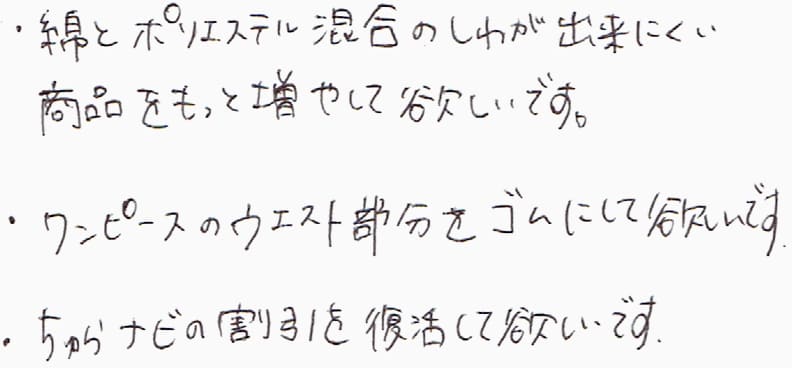 ・綿とポリエステル混合のしわが出来にくい
商品をもっと増やして欲しいです。
・ワンピースのウエスト部分をゴムにして欲しいです.
・ちゅらナビの割引を復活して欲しいです.